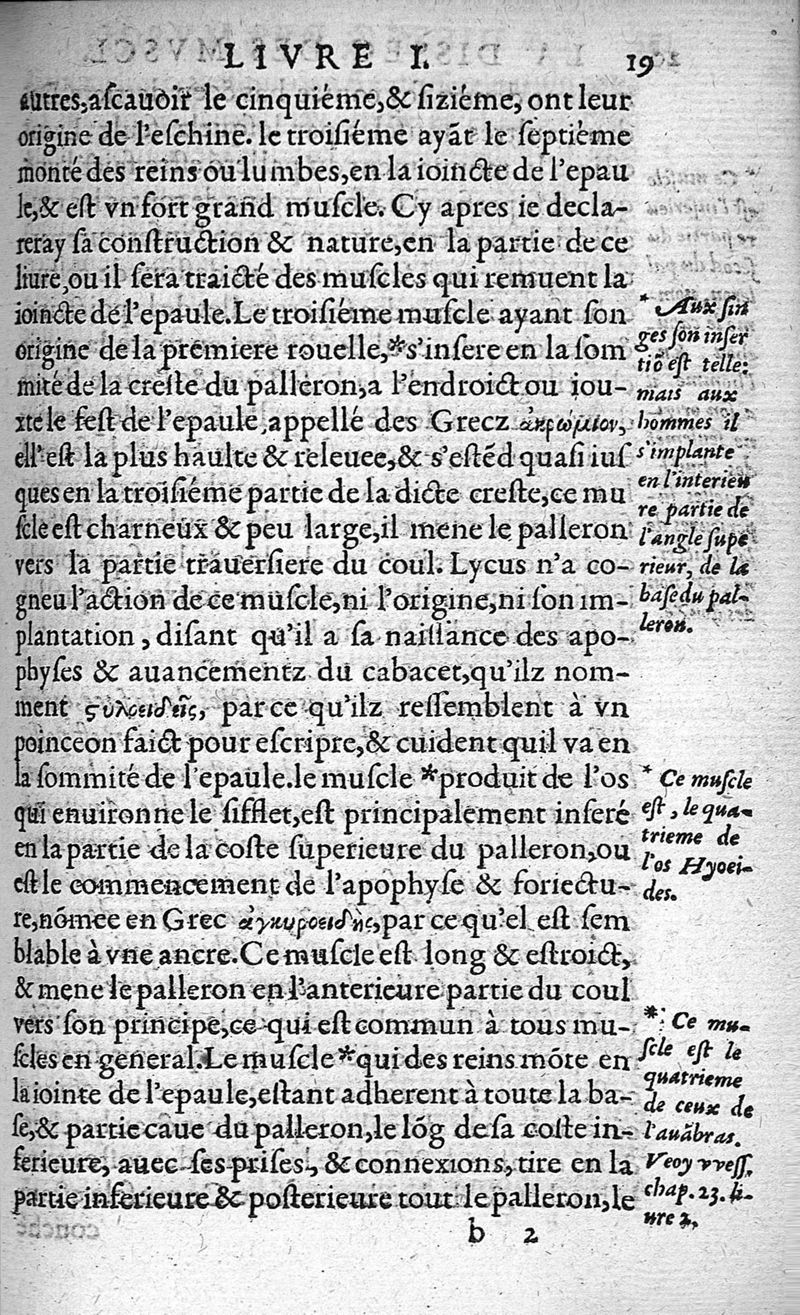 LIVRE I. 19
autres,ascauoir le cinquiéme,& siziéme, ont leur
origine de l'eschine. le troisiéme ayāt le septiéme
monté des reins ou lumbes,en la ioincte de l'epau
le,& est vn fort grand muscle. Cy apres ie decla-
reray sa construction & nature,en la partie de ce
liure,ou il sera traicté des muscles qui remuent la
ioincte de l'epaule.Le troisiéme muscle ayant son
origine de la premiere rouelle,*s'insere en la som
mité de la creste du palleron,a l'endroict ou iou-
xte le fest de l'epaule,appellé des Grecz ἀκρώμιον,
ell'est la plus haulte & releuee,& s'estēd quasi iuſ
ques en la troisiéme partie de la dicte creste,ce mu
scle est charneux & peu large,il mene le palleron
vers la partie trauersiere du coul. Lycus n'a co-
gneu l'action de ce muscle,ni l'origine,ni son im-
plantation, disant qu'il a sa naissance des apo-
physes & auancementz du cabacet,qu'ilz nom-
ment ϛυλοειδεῖς, par ce qu'ilz ressemblent à vn
poinceon faict pour escripre,& cuident quil va en
la sommité de l'epaule.le muscle *produit de l'os
qui enuironne le sifflet,est principalement inseré
en la partie de la coste superieure du palleron,ou
est le commencement de l'apophyse & foriectu-
re,nōmee en Grec ἀγκυροειδὴς,par ce qu'el est sem
blable à vne ancre.Ce muscle est long & estroict,
& mene le palleron en l'anterieure partie du coul
vers son principe,ce qui est commun à tous mu-
scles en general.Le muscle*qui des reins mōte en
la iointe de l'epaule,estant adherent à toute la ba-
se,& partie caue du palleron,le lōg de sa coste in-
ferieure, auec ses prises, & connexions,tire en la
partie inferieure & posterieure tout le palleron,le
b 2
* Aux sin
ges son inser
tiō est telle:
mais aux
hommes il
s'implante
en l'interieu
re partie de
l'angle supe
rieur, de la
base du pal-
leron.
* Ce muscle
est, le qua-
trieme de
l'os Hyoei-
des.
* Ce mu-
scle est le
quatrieme
de ceux de
l'auābras.
Veoy vvess.
chap. 23. li-
ure 2,